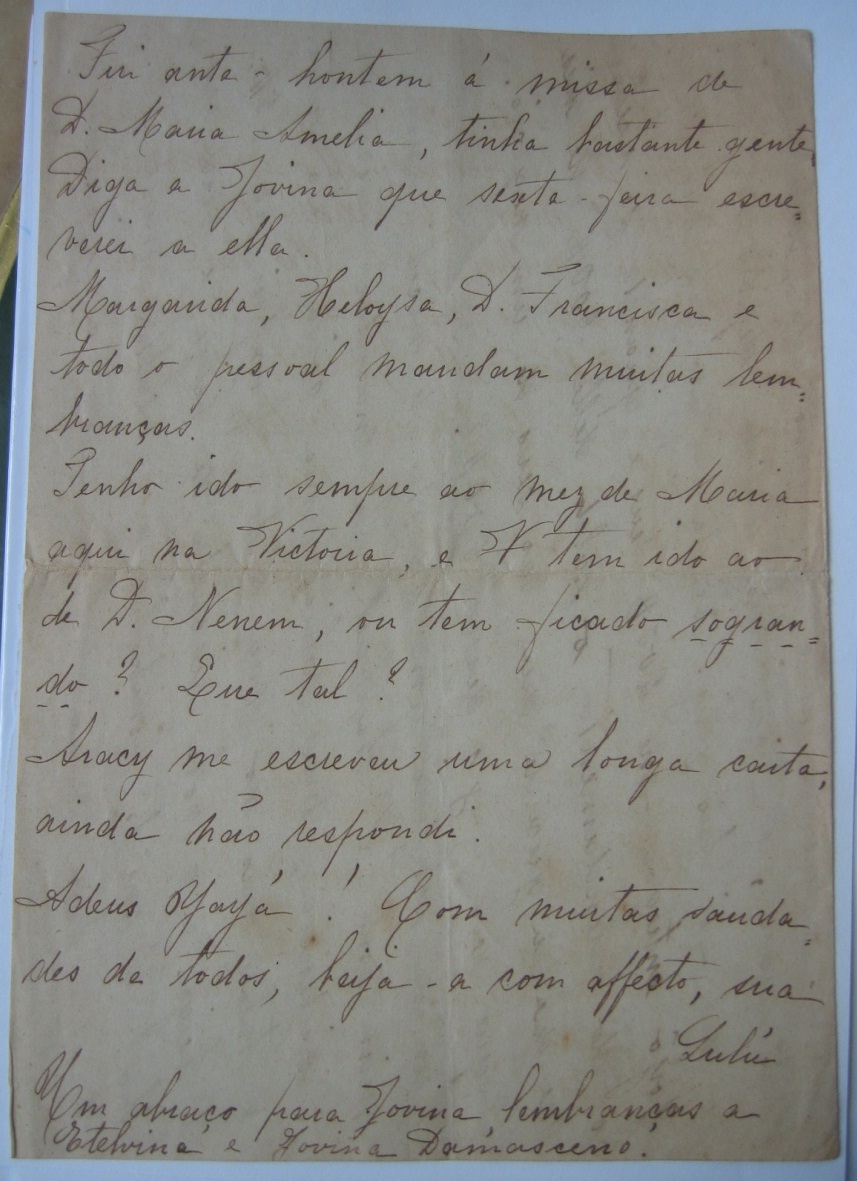 Fui ante-hontem á missa de
D. Maria Amelia, tinha bastante gente.
Diga a Jovina que sexta-feira escre=
verei a ella.
Margarida, Heloysa, D. Francisca e
todo o pessoal mandam muitas lem=
branças.
Tenho ido sempre ao mez de Maria
aqui na Victoria, e V tem ido ao
de D. Nenem, ou tem ficado sogran=
do? Que tal?
Aracy me escreveu uma longa carta,
ainda não respondi.
Adeus Yayá! Com muitas sauda=
des de todos, beija-a com affecto, sua
Lulú
Um abraço para Jovina, lembranças a
Etelvina e Jovina Damasceno.